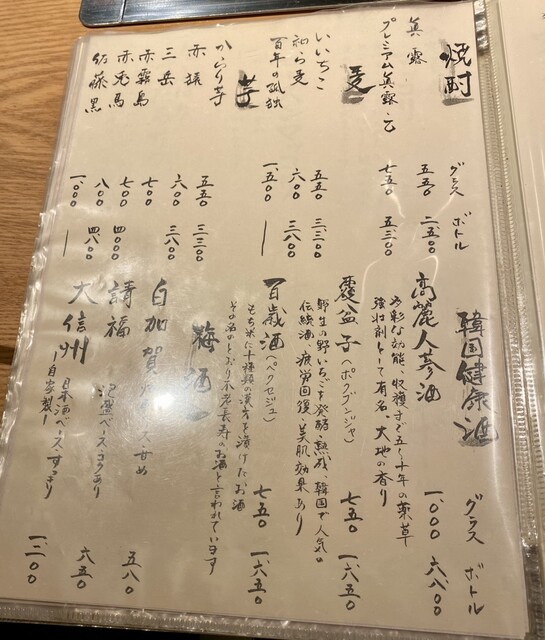 焼酎
グラス ボトル
眞露 五五〇 二、五〇〇
プレミアム眞露・乙 七五〇 五、三〇〇
麦
いいちこ 五五〇 三、三〇〇
知ら麦 六〇〇 三、八〇〇
百年の孤独 一、五〇〇 ―
芋
からり芋 五五〇 三、三〇〇
赤猿 六〇〇 三、八〇〇
三岳 七〇〇
赤霧島 七〇〇 四、〇〇〇
赤兎馬 八〇〇 四、八〇〇
佐藤黒 一、〇〇〇 ―
韓国健康酒
グラス ボトル
高麗人蔘酒 一、〇〇〇 六、八〇〇
多彩な効能、収穫まで五〜十年の薬草
強壮剤として有名、大地の香り
覆盆子(ポクブンジャ) 七五〇 一、六五〇
野生の野いちごを発酵・熟成、韓国で人気の
伝統酒 疲労回復、美肌効果あり
百歳酒(ペクセジュ) 七五〇 一、六五〇
もち米に十種類の漢方を漬けたお酒
その名のとおり不老長寿のお酒と言われています
梅酒
白加賀 ス、甘め 五八〇
請福 泡盛ベース・コクあり 六五〇
大信州 日本酒ベース、すっきり
―自家製― 一、二〇〇